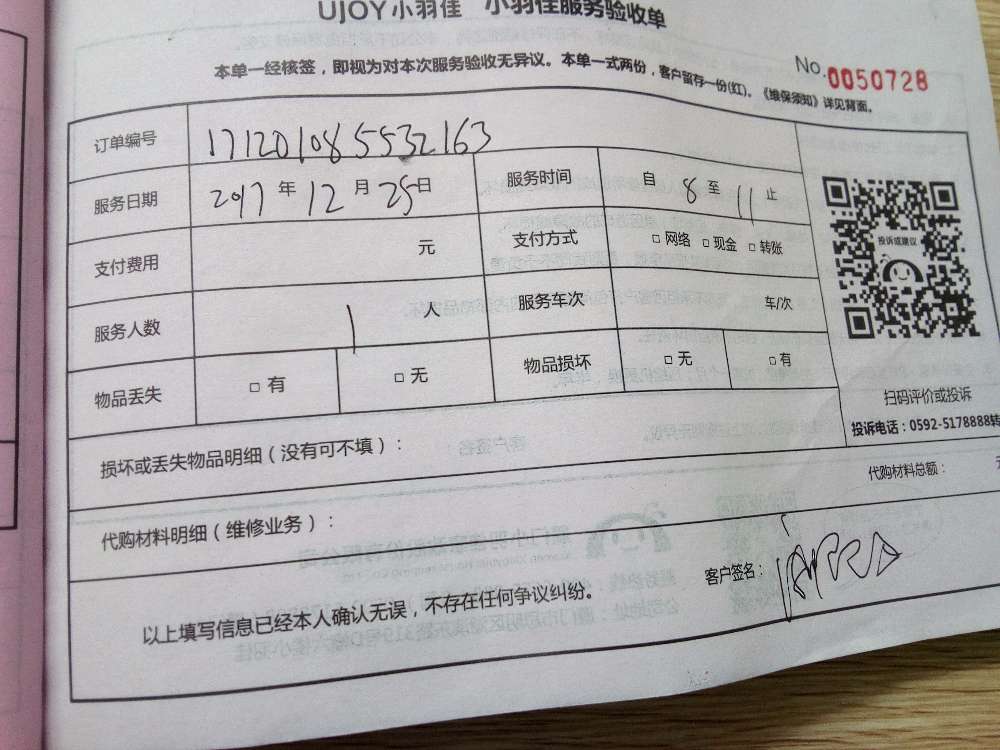 UJOY小羽佳 小羽佳服务验收单
No.0050728
本单一经核签，即视为对本次服务验收无异议。本单一式两份，客户留存一份(红)。《维保须知》详见背面。
订单编号 171201085532163
服务日期 2017年12月25日 服务时间 自8至11止
支付费用 元 支付方式 □网络 □现金 □转账
服务人数 1人 服务车次 车/次
物品丢失 □有 □无 物品损坏 □无 □有
投诉或建议
扫码评价或投诉
投诉电话：0592-5178888转
损坏或丢失物品明细（没有可不填）：
代购材料明细（维修业务）： 代购材料总额：
以上填写信息已经本人确认无误，不存在任何争议纠纷。 客户签名：